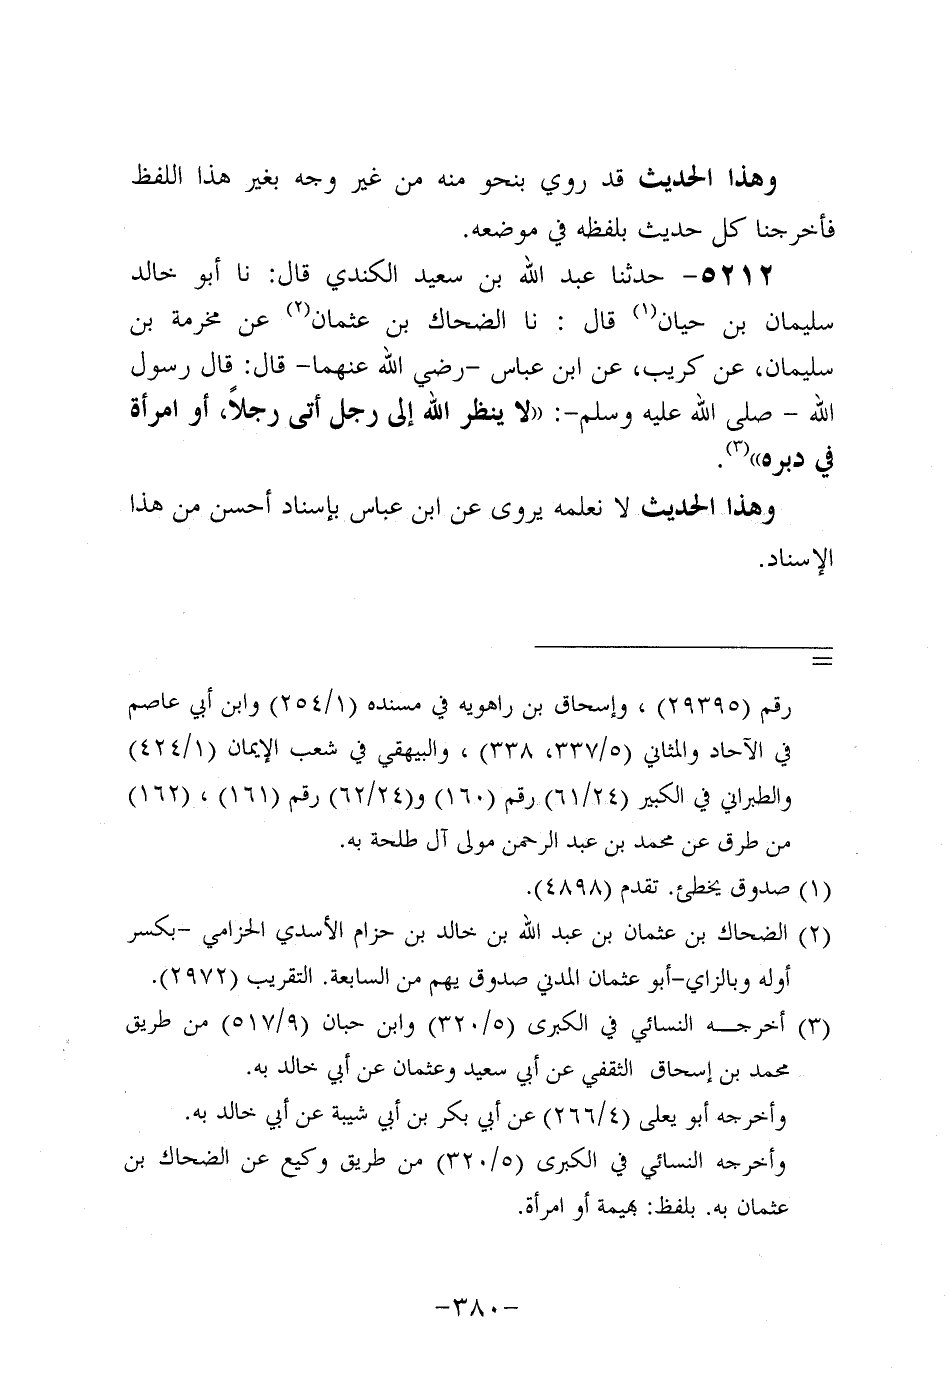 وهذا الحديث قد روي بنحو منه من غير وجه بغير هذا اللفظ
فأخرجنا كل حديث بلفظه في موضعه.
٥٢١٢- حدثنا عبد الله بن سعيد الكندي قال: نا أبو خالد
سليمان بن حيان(١) قال : نا الضحاك بن عثمان(٢) عن مخرمة بن
سليمان، عن كريب، عن ابن عباس -رضي الله عنهما- قال: قال رسول
الله - صلى الله عليه وسلم-: «لا ينظر الله إلى رجل أتى رجلاً، أو امرأة
في دبره»(٣).
وهذا الحديث لا نعلمه يروى عن ابن عباس بإسناد أحسن من هذا
الإسناد.
=
رقم (٢٩٣٩٥) ، وإسحاق بن راهويه في مسنده (٢٥٤/١) وابن أبي عاصم
في الآحاد والمثاني (٣٣٧/٥، ٣٣٨) ، والبيهقي في شعب الإيمان (٤٢٤/١)
والطبراني في الكبير (٦١/٢٤) رقم (١٦٠) و(٦٢/٢٤) رقم (١٦١) ، (١٦٢)
من طرق عن محمد بن عبد الرحمن مولى آل طلحة به.
(١) صدوق يخطئ. تقدم (٤٨٩٨).
(٢) الضحاك بن عثمان بن عبد الله بن خالد بن حزام الأسدي الحزامي -بكسر
أوله وبالزاي-أبو عثمان المدني صدوق يهم من السابعة. التقريب (٢٩٧٢).
(٣) أخرجـــه النسائي في الكبرى (٣٢٠/٥) وابن حبان (٥١٧/٩) من طريق
محمد بن إسحاق الثقفي عن أبي سعيد وعثمان عن أبي خالد به.
وأخرجه أبو يعلى (٢٦٦/٤) عن أبي بكر بن أبي شيبة عن أبي خالد به.
وأخرجه النسائي في الكبرى (٣٢٠/٥) من طريق وكيع عن الضحاك بن
عثمان به. بلفظ: بهيمة أو امرأة.
-٣٨٠-